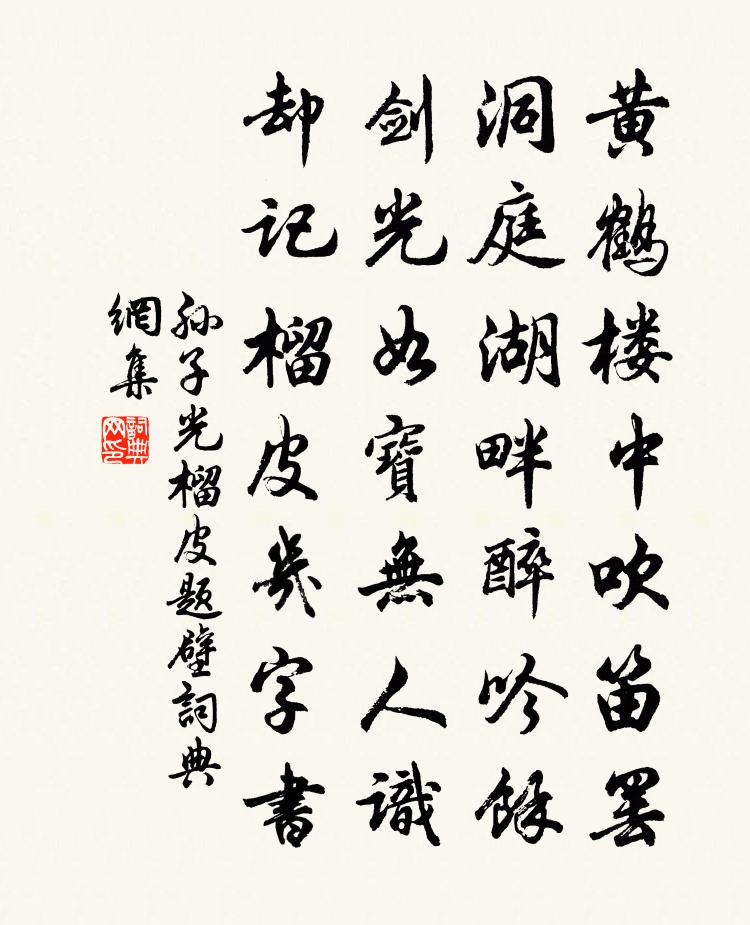 黄鹤楼中吹笛罢
洞庭湖畔醉吟餘
劍光如寶無人識
却记榴皮幾字書
孙子光榴皮题壁詞典
網集
詞典网印